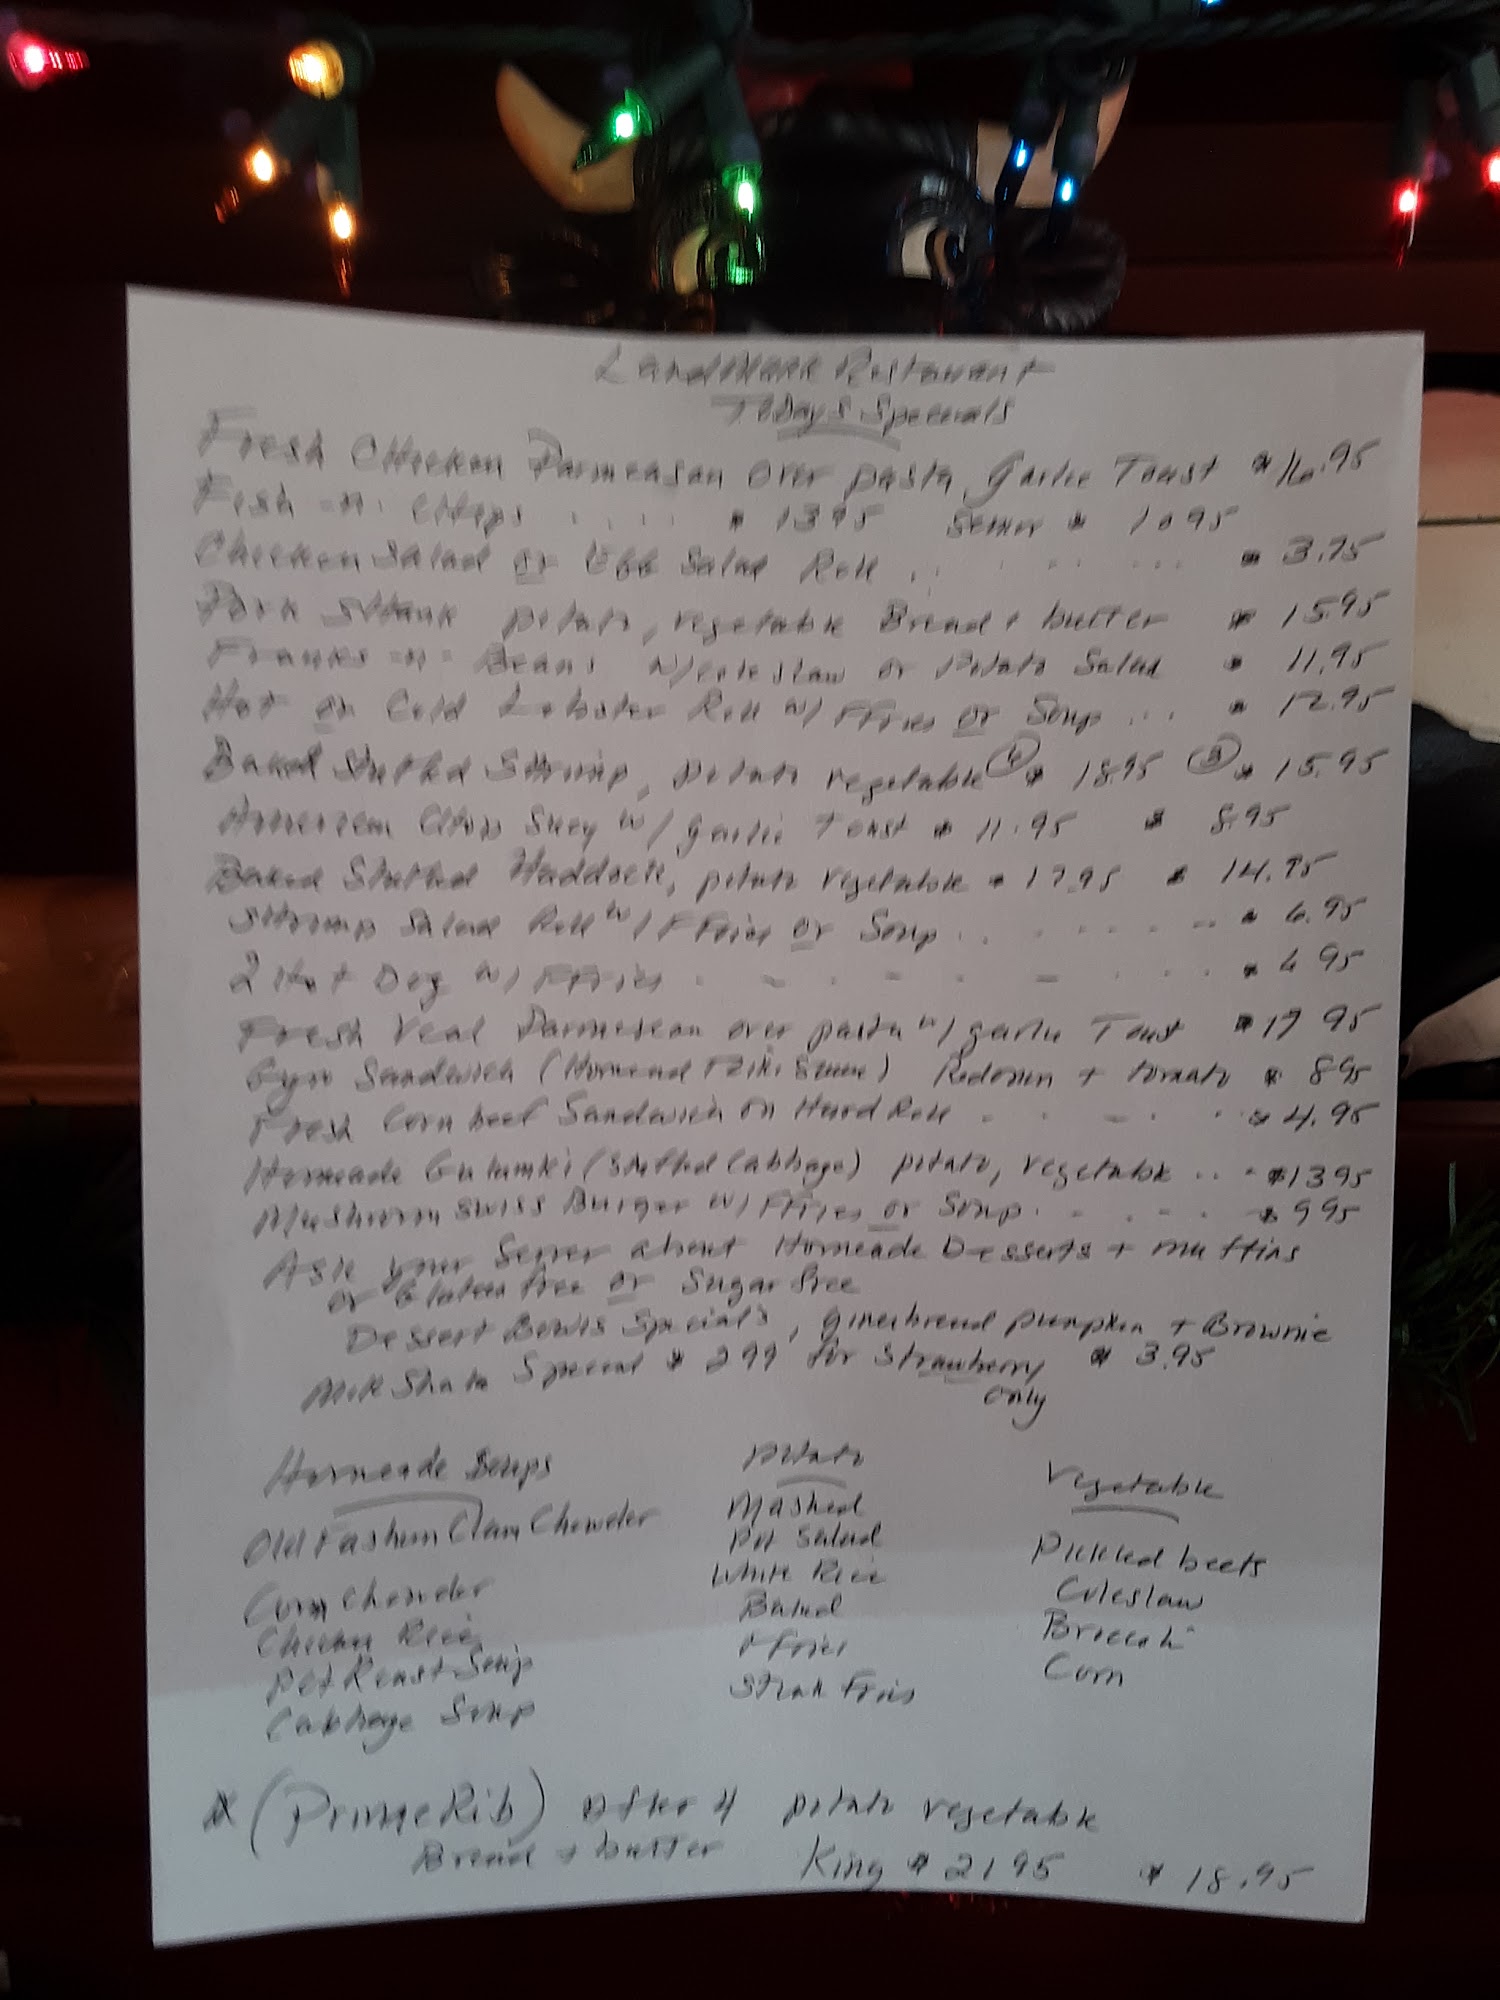 Landmark Restaurant
Todays Specials
Fresh Chicken Parmeasan over pasta, Garlic Toast $16.95
Fish -n- Chips . . . . . $ 13 95 Senior $ 10 95
Chicken Salad or Egg Salad Roll . . . . . . . $ 3.75
Pork Shank potato, vegetable Bread + butter $ 15.95
Franks -n- Beans w/coleslaw or Potato Salad $ 11.95
Hot or Cold Lobster Roll w/ FFries or Soup ... $ 12.95
Baked Stuffed Shrimp, potato vegetable (4) $ 18.95 (3) $ 15.95
American Chop Suey w/ garlic Toast $ 11.95 $ 8.95
Baked Stuffed Haddock, potato vegetable $ 17.95 $ 14.95
Shrimp Salad Roll w/ FFries or Soup . . . . . . . $ 6.95
2 Hot Dog w/ FFries . - - . - . . . $ 6 95
Fresh Veal Parmesean over pasta w/ garlic Toast $17 95
Gyro Sandwich (Homead Tziki Sauce) Redonion + tomato $ 8 95
Fresh Corn beef Sandwich on Hard Roll . . - . . $ 4.95
Homeade Gulumki (Stuffed Cabbage) potato, vegetable .. - $13 95
Mushroom Swiss Burger w/ FFries or Soup . - . - - $ 9 95
Ask your Server about Homeade Desserts + muffins
or Gluten free or Sugar free
Dessert Bowls Specials, ginerbread pumpkin + Brownie
Milk Shake Special $ 2 99 for Strawberry $ 3.95
only
Homeade Soups
Old Fashion Clam Chowder
Corn Chowder
Chicken Rice
Pot Roast Soup
Cabbage Soup
Potato
Mashed
Pot Salad
White Rice
Baked
FFries
Steak Fries
Vegetable
Pickled beets
Coleslaw
Broccoli
Corn
* (Prime Rib) After 4 potato vegetable
Bread + butter King $ 21 95 $ 18.95